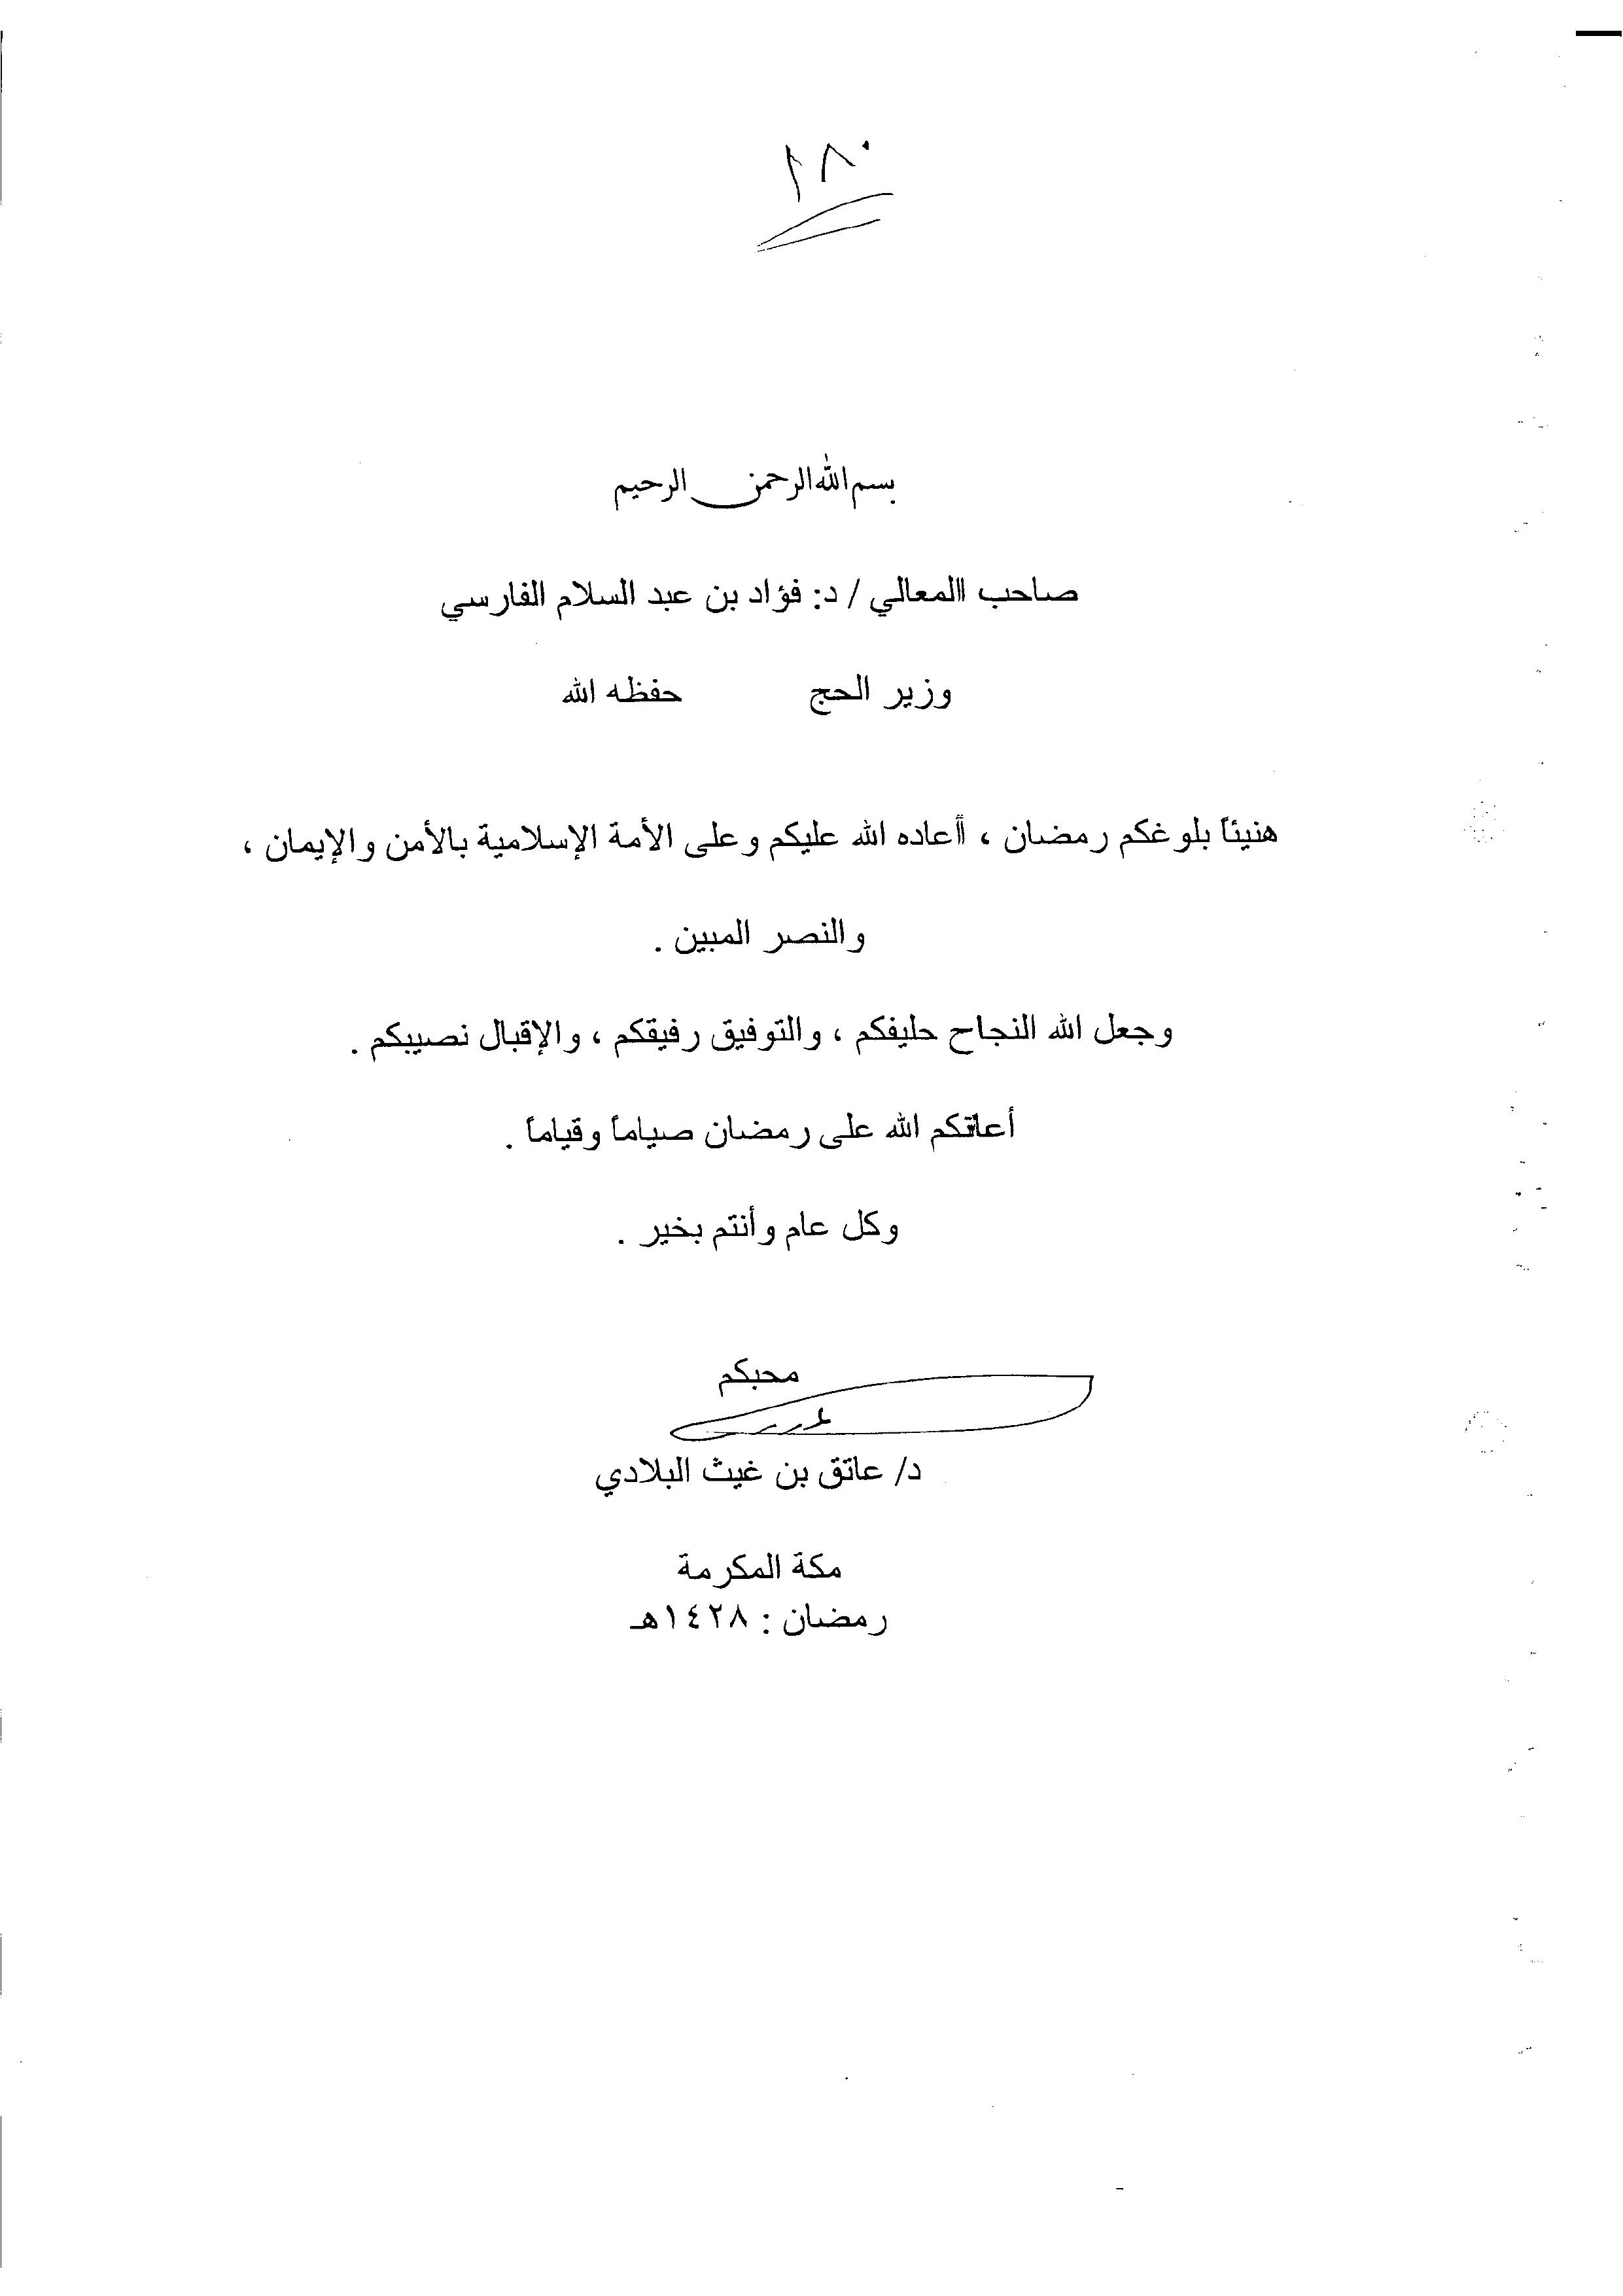 ٢٨٠
بسم الله الرحمن الرحيم
صاحب االمعالي / د: فؤاد بن عبد السلام الفارسي
وزير الحج حفظه الله
هنيئاً بلوغكم رمضان ، أأعاده الله عليكم وعلى الأمة الإسلامية بالأمن والإيمان ،
والنصر المبين .
وجعل الله النجاح حليفكم ، والتوفيق رفيقكم ، والإقبال نصيبكم .
أعانكم الله على رمضان صياماً وقياماً .
وكل عام وأنتم بخير .
محبكم
د/ عاتق بن غيث البلادي
مكة المكرمة
رمضان : ١٤٢٨هـ